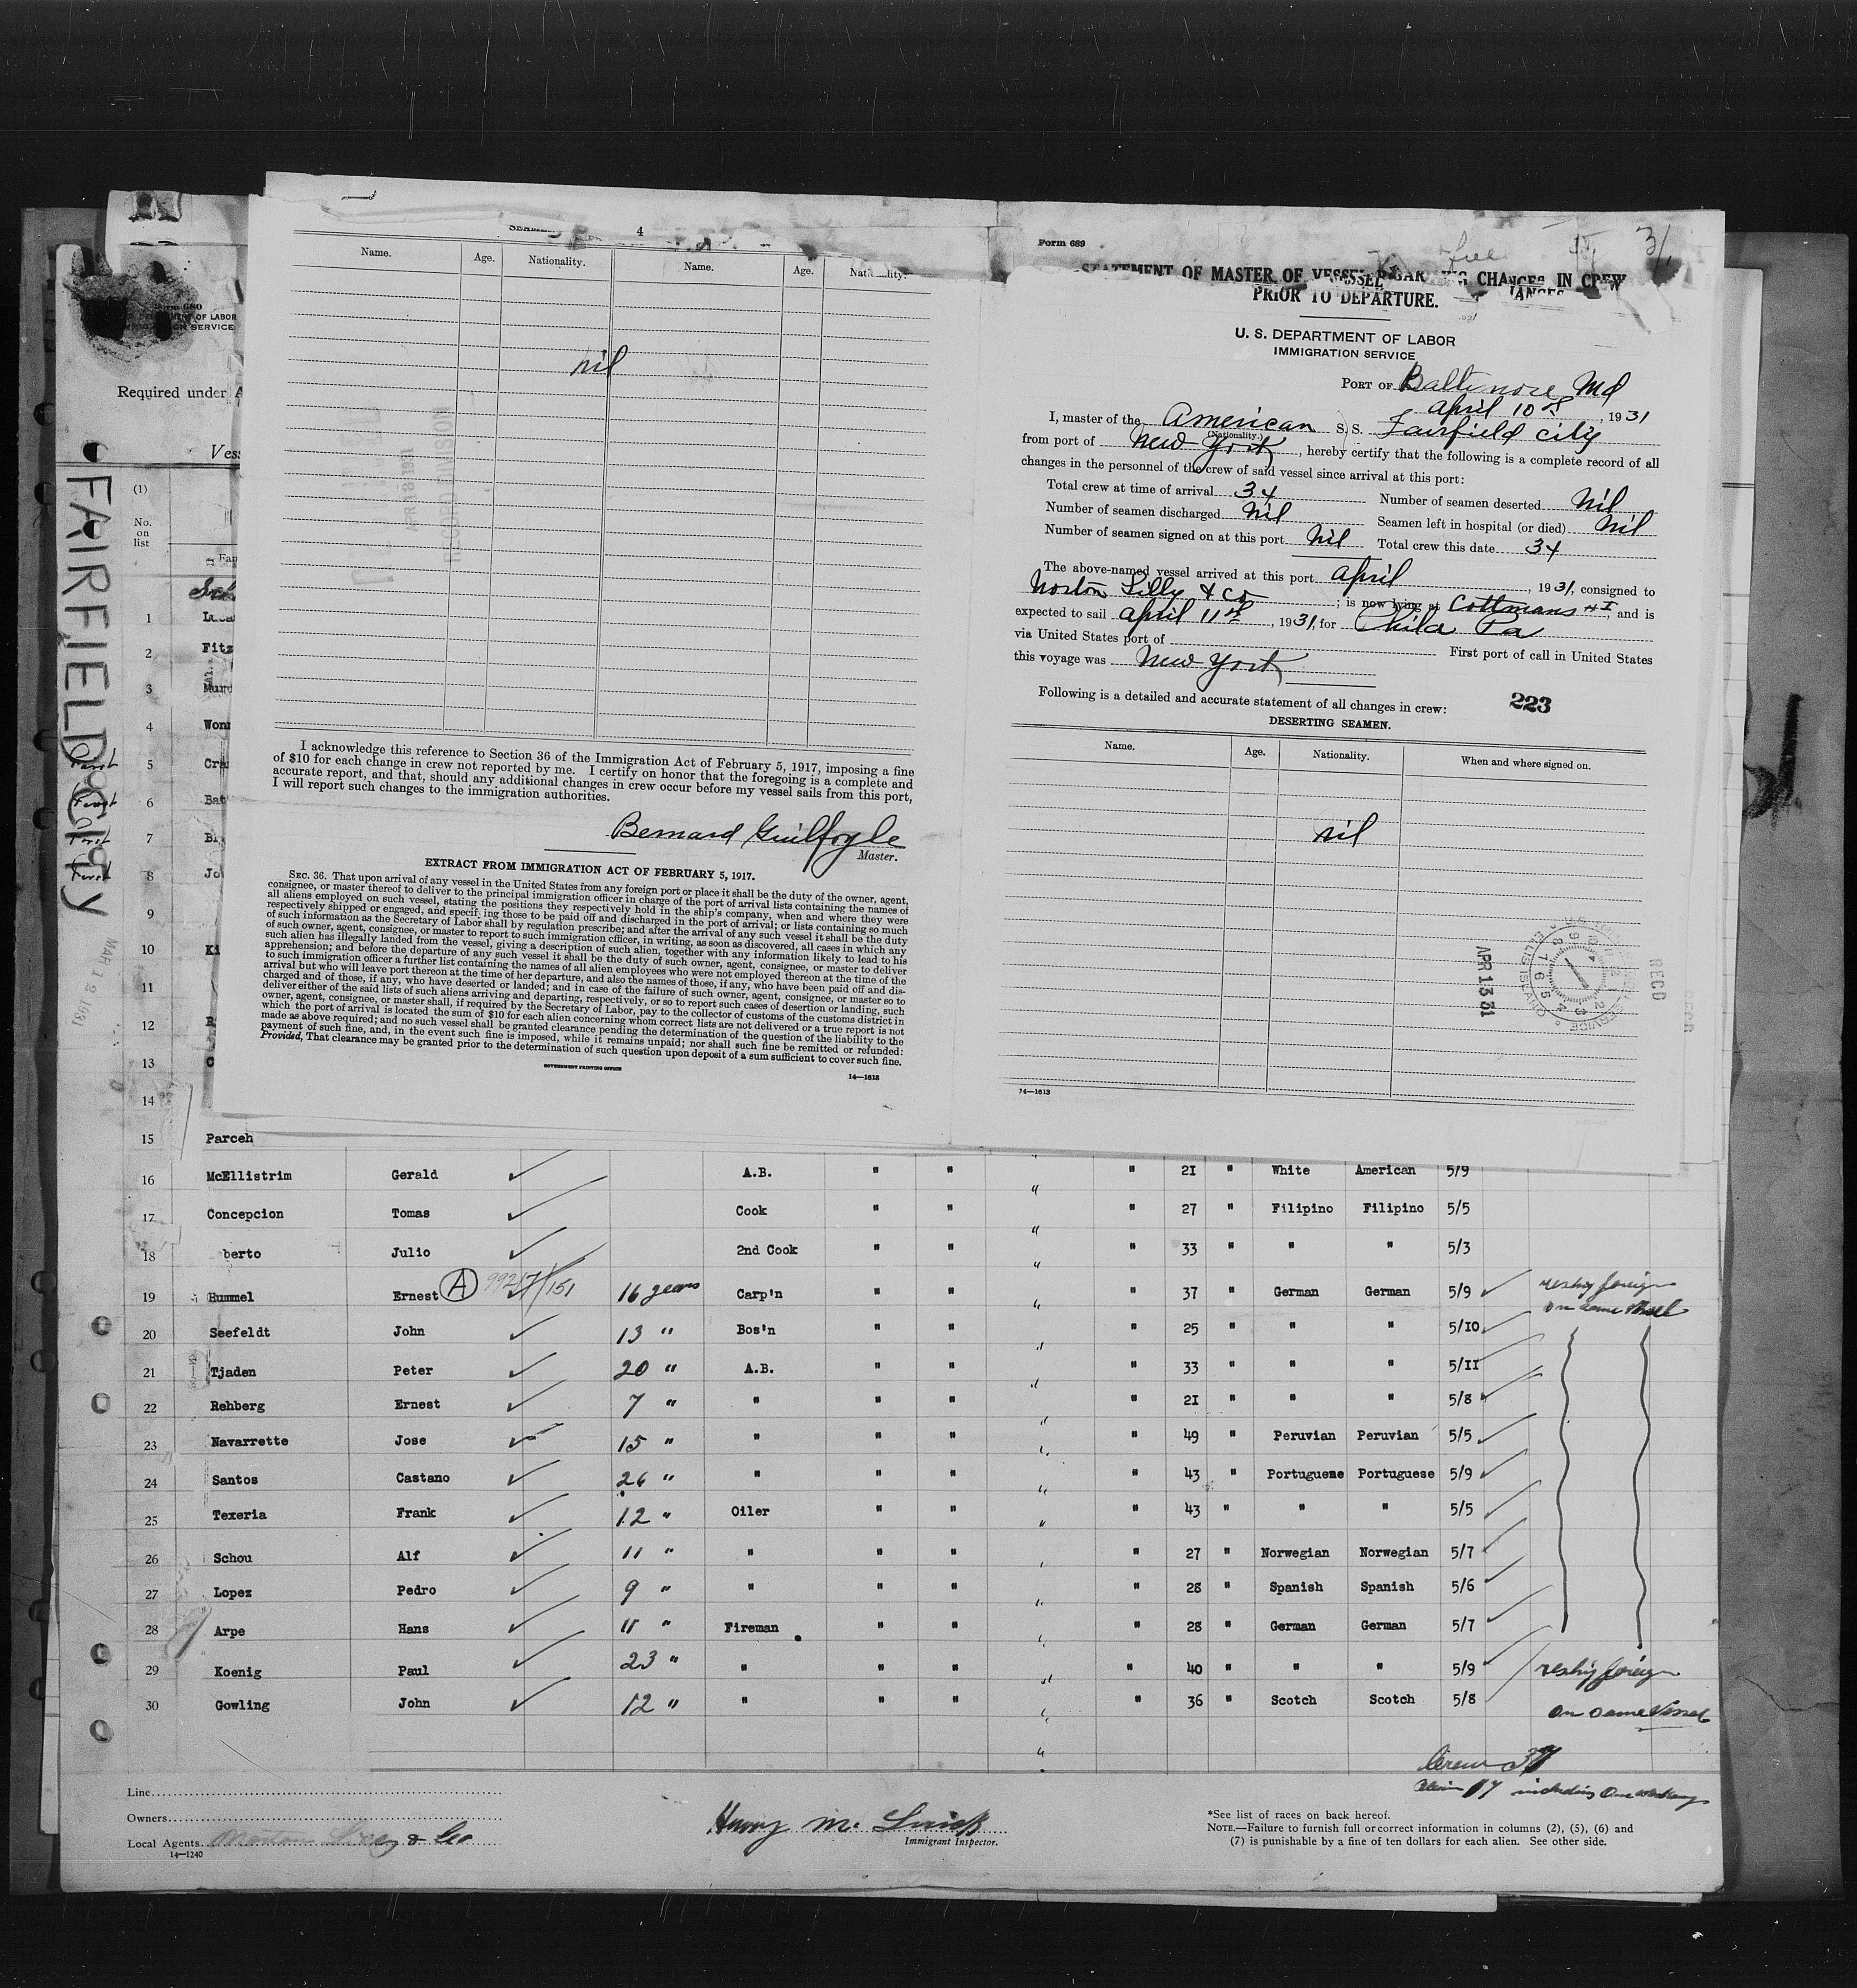 4
Name. Age. Nationality. Name. Age.
nil
I acknowledge this reference to Section 36 of the Immigration Act of February 5, 1917, imposing a fine
of $10 for each change in crew not reported by me. I certify on honor that the foregoing is a complete and
accurate report, and that, should any additional changes in crew occur before my vessel sails from this port,
I will report such changes to the immigration authorities.
Bernard Guilfoyle
Master.
EXTRACT FROM IMMIGRATION ACT OF FEBRUARY 5, 1917.
SEC. 36. That upon arrival of any vessel in the United States from any foreign port or place it shall be the duty of the owner, agent,
consignee, or master thereof to deliver to the principal immigration officer in charge of the port of arrival lists containing the names of
all aliens employed on such vessel, stating the positions they respectively hold in the ship's company, when and where they were
respectively shipped or engaged, and specifying those to be paid off and discharged in the port of arrival; or lists containing so much
of such information as the Secretary of Labor shall by regulation prescribe; and after the arrival of any such vessel it shall be the duty
of such owner, agent, consignee, or master to report to such immigration officer, in writing, as soon as discovered, all cases in which any
such alien has illegally landed from the vessel, giving a description of such alien, together with any information likely to lead to his
apprehension; and before the departure of any such vessel it shall be the duty of such owner, agent, consignee, or master to deliver
to such immigration officer a further list containing the names of all alien employees who were not employed thereon at the time of the
arrival but who will leave port thereon at the time of her departure, and also the names of those, if any, who have been paid off and dis-
charged and of those, if any, who have deserted or landed; and in case of the failure of such owner, agent, consignee, or master so to
deliver either of the said lists of such aliens arriving and departing, respectively, or so to report such cases of desertion or landing, such
owner, agent, consignee, or master, shall, if required by the Secretary of Labor, pay to the collector of customs of the customs district in
which the port of arrival is located the sum of $10 for each alien concerning whom correct lists are not delivered or a true report is not
made as above required; and no such vessel shall be granted clearance pending the determination of the question of the liability to the
payment of such fine, and, in the event such fine is imposed, while it remains unpaid; nor shall such fine be remitted or refunded:
Provided, That clearance may be granted prior to the determination of such question upon deposit of a sum sufficient to cover such fine.
GOVERNMENT PRINTING OFFICE
14—1613
Form 689
31
STATEMENT OF MASTER OF VESSEL CHANGES IN CREW
PRIOR TO DEPARTURE.
U. S. DEPARTMENT OF LABOR
IMMIGRATION SERVICE
PORT OF Baltimore Md
April 10th, 1931
I, master of the American S. S. Fairfield City
(Nationality.)
from port of New York, hereby certify that the following is a complete record of all
changes in the personnel of the crew of said vessel since arrival at this port:
Total crew at time of arrival 34 Number of seamen deserted Nil
Number of seamen discharged Nil Seamen left in hospital (or died) Nil
Number of seamen signed on at this port Nil Total crew this date 34
The above-named vessel arrived at this port April, 1931, consigned to
Norton Lilly & Co; is now lying at Cottmans #I, and is
expected to sail April 11th, 1931, for Phila Pa
via United States port of First port of call in United States
this voyage was New York
Following is a detailed and accurate statement of all changes in crew: 223
DESERTING SEAMEN.
Name. Age. Nationality. When and where signed on.
nil
APR 13 31
RECD
14—1613
Required under A
FAIRFIELD City
MAR 12 1931
APR 18 1931
RECORD DIVISION
(1)
No.
on
list
1
2 Fitz
3
4
5
6
7
8 Jo
9
10 Ki
11
12
13
14
15 Parceh
16 McEllistrim Gerald A.B. " " " " 21 " White American 5/9
17 Concepcion Tomas Cook " " " " 27 " Filipino Filipino 5/5
18 berto Julio 2nd Cook " " " " 33 " " " 5/3
19 Hummel Ernest A 99217/151 16 years Carp'n " " " " 37 " German German 5/9 reship foreign
on same vessel
20 Seefeldt John 13 " Bos'n " " " " 25 " " " 5/10
21 Tjaden Peter 20 " A.B. " " " " 33 " " " 5/11
22 Rehberg Ernest 7 " " " " " " 21 " " " 5/8
23 Navarrette Jose 15 " " " " " " 49 " Peruvian Peruvian 5/5
24 Santos Castano 26 " " " " " " 43 " Portuguese Portuguese 5/9
25 Texeria Frank 12 " Oiler " " " " 43 " " " 5/5
26 Schou Alf 11 " " " " " " 27 " Norwegian Norwegian 5/7
27 Lopez Pedro 9 " " " " " " 28 " Spanish Spanish 5/6
28 Arpe Hans 11 " Fireman " " " " 28 " German German 5/7
29 Koenig Paul 23 " " " " " " 40 " " " 5/9 reship foreign
30 Gowling John 12 " " " " " " 36 " Scotch Scotch 5/8 on same vessel
Crew 37
Line
Owners
Local Agents Norton Lilly & Co
14—1240
Immigrant Inspector.
*See list of races on back hereof.
NOTE.—Failure to furnish full or correct information in columns (2), (5), (6) and
(7) is punishable by a fine of ten dollars for each alien. See other side.